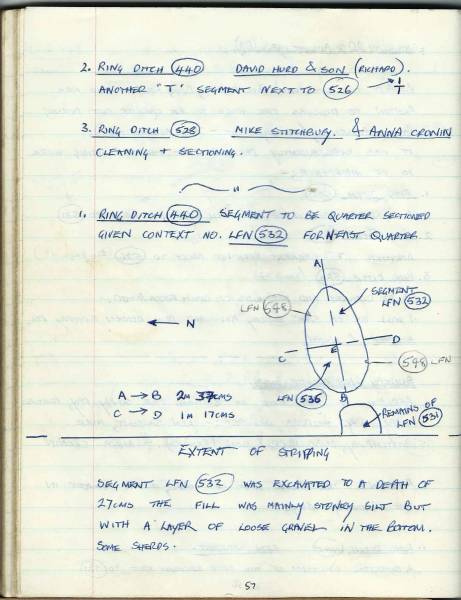 2. RING DITCH 440 DAVID HURD & SON (RICHARD).
ANOTHER "T" SEGMENT NEXT TO 526 1/T
3. RING DITCH 528 MIKE STITCHBURY. & ANNA CRONIN
CLEANING + SECTIONING.
"
1. RING DITCH 440 SEGMENT TO BE QUARTER SECTIONED
GIVEN CONTEXT NO. LFN 532 FOR N EAST QUARTER
A
SEGMENT
LFN 532
LFN 548
← N
D
E
C
548 LFN
A → B 2m 37cms
C → D 1m 17cms
LFN 536
B
REMAINS OF
LFN 531
EXTENT OF STRIPPING
SEGMENT LFN 532 WAS EXCAVATED TO A DEPTH OF
27cms THE FILL WAS MAINLY STONEY SILT BUT
WITH A LAYER OF LOOSE GRAVEL IN THE BOTTOM.
SOME SHERDS.
57